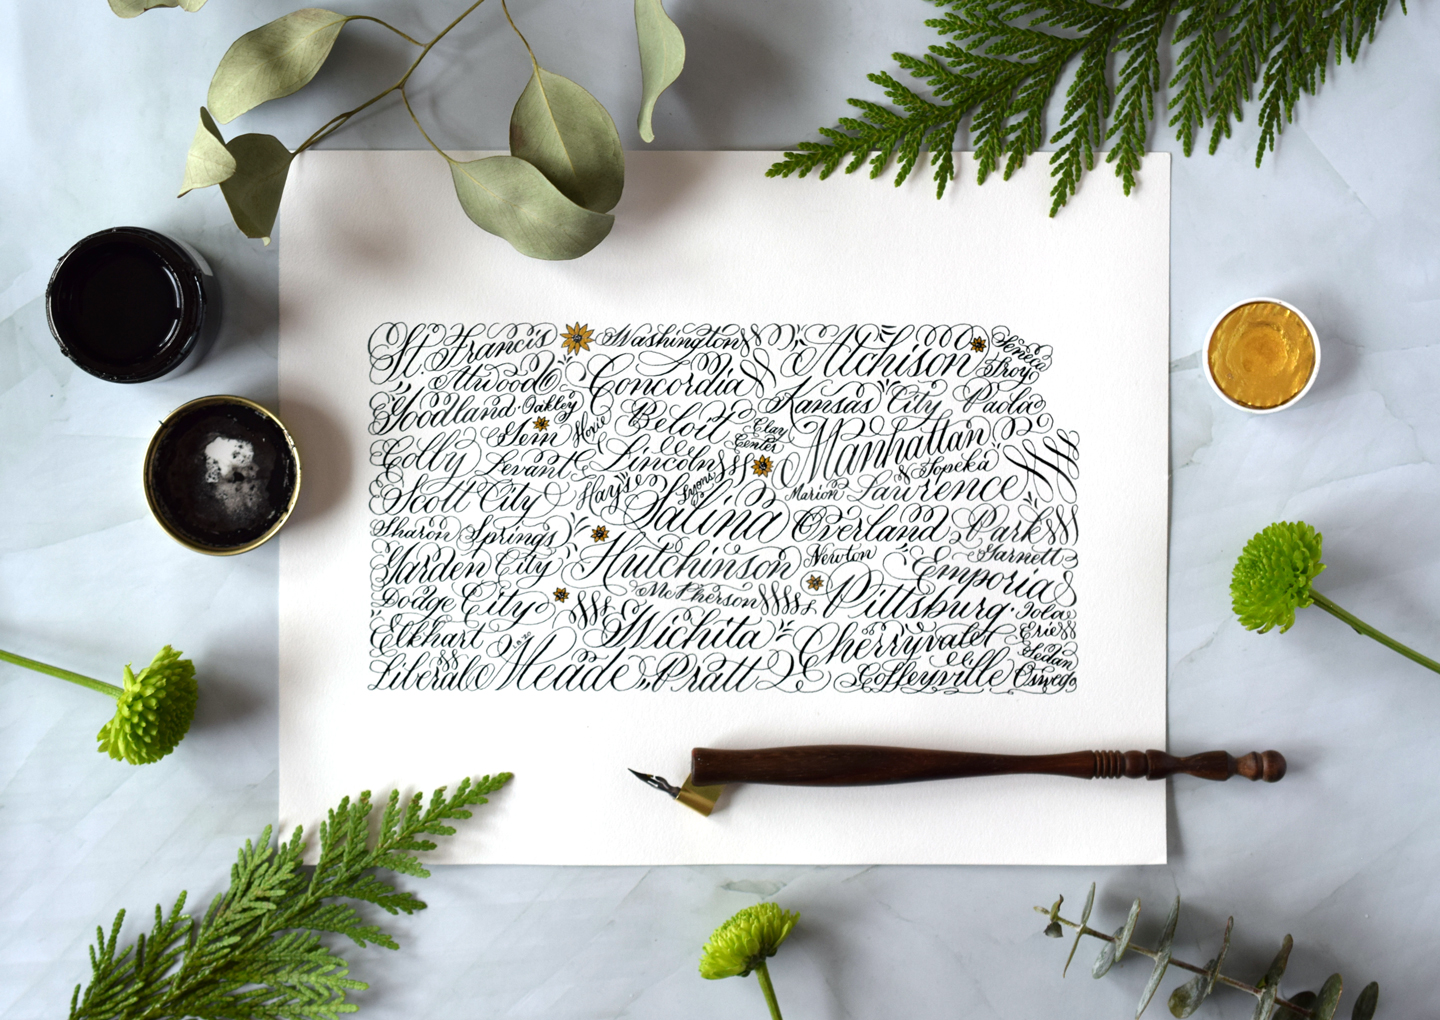 St. Francis Washington Atchison Seneca
Atwood Concordia Troy
Goodland · Oakley Beloit Kansas City Paola
Gem Hoxie Clay Center Manhattan
Colby Levant Lincoln & Topeka
Scott City Hays Lyons Salina Marion Lawrence
Sharon Springs Overland Park
Garden City Hutchinson Newton Garnett
Dodge City McPherson Emporia
Elkhart Wichita Pittsburg · Iola
Liberal Meade Pratt Cherryvale Erie
Coffeyville Sedan
Oswego